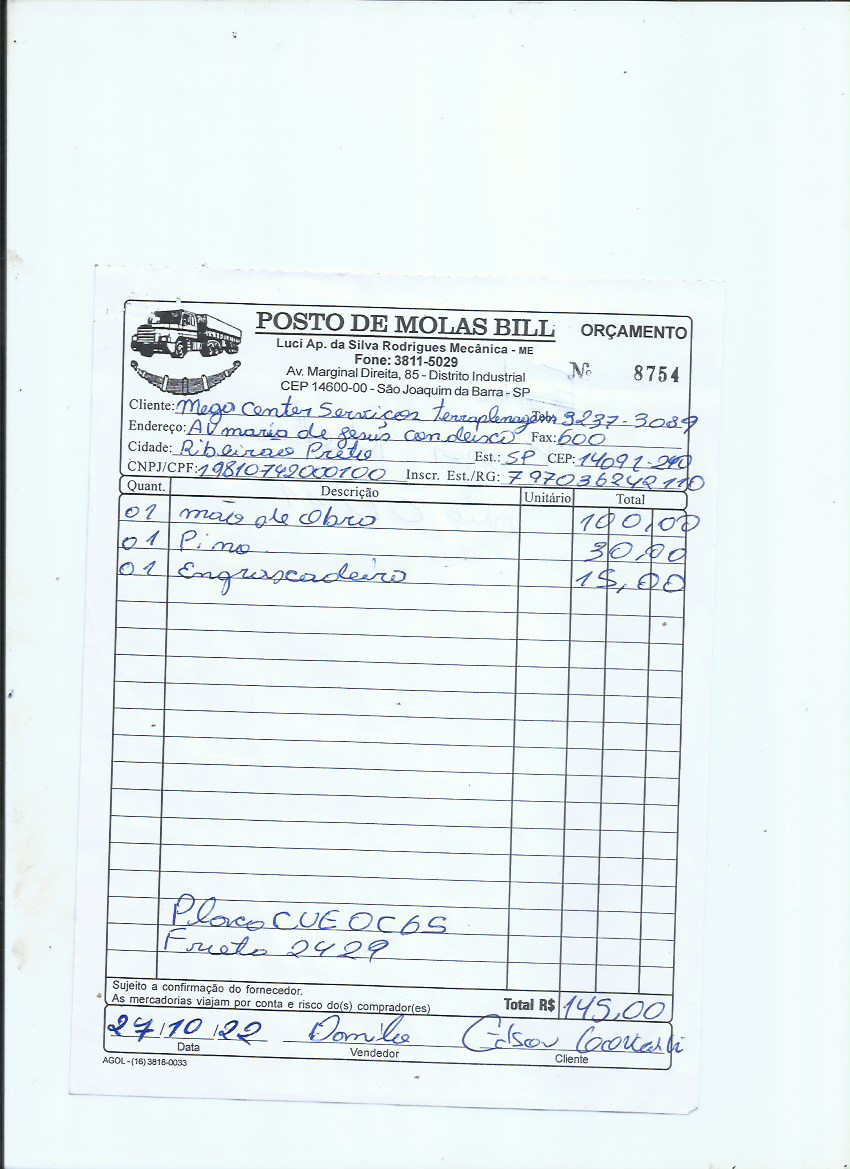 POSTO DE MOLAS BILL
ORÇAMENTO
Luci Ap. da Silva Rodrigues Mecânica - ME
Fone: 3811-5029
Av. Marginal Direita, 85 - Distrito Industrial
CEP 14600-00 - São Joaquim da Barra - SP
Nº 8754
Cliente: Mega Center Serviços terraplenagem 3237-3089
Endereço: AV maria de jesus condeixa Fax: 600
Cidade: Ribeirao Preto Est.: SP CEP: 14091-240
CNPJ/CPF: 19810742000100 Inscr. Est./RG: 797036242110
Quant. Descrição Unitário Total
01 mão de obra 100,00
01 Pino 30,00
01 Engraxadeira 15,00
Placa CUE0C65
Frota 2429
Sujeito a confirmação do fornecedor.
As mercadorias viajam por conta e risco do(s) comprador(es)
Total R$ 145,00
27/10/22 Danilo Edson
Data Vendedor Cliente
AGOL - (16) 3818-0033